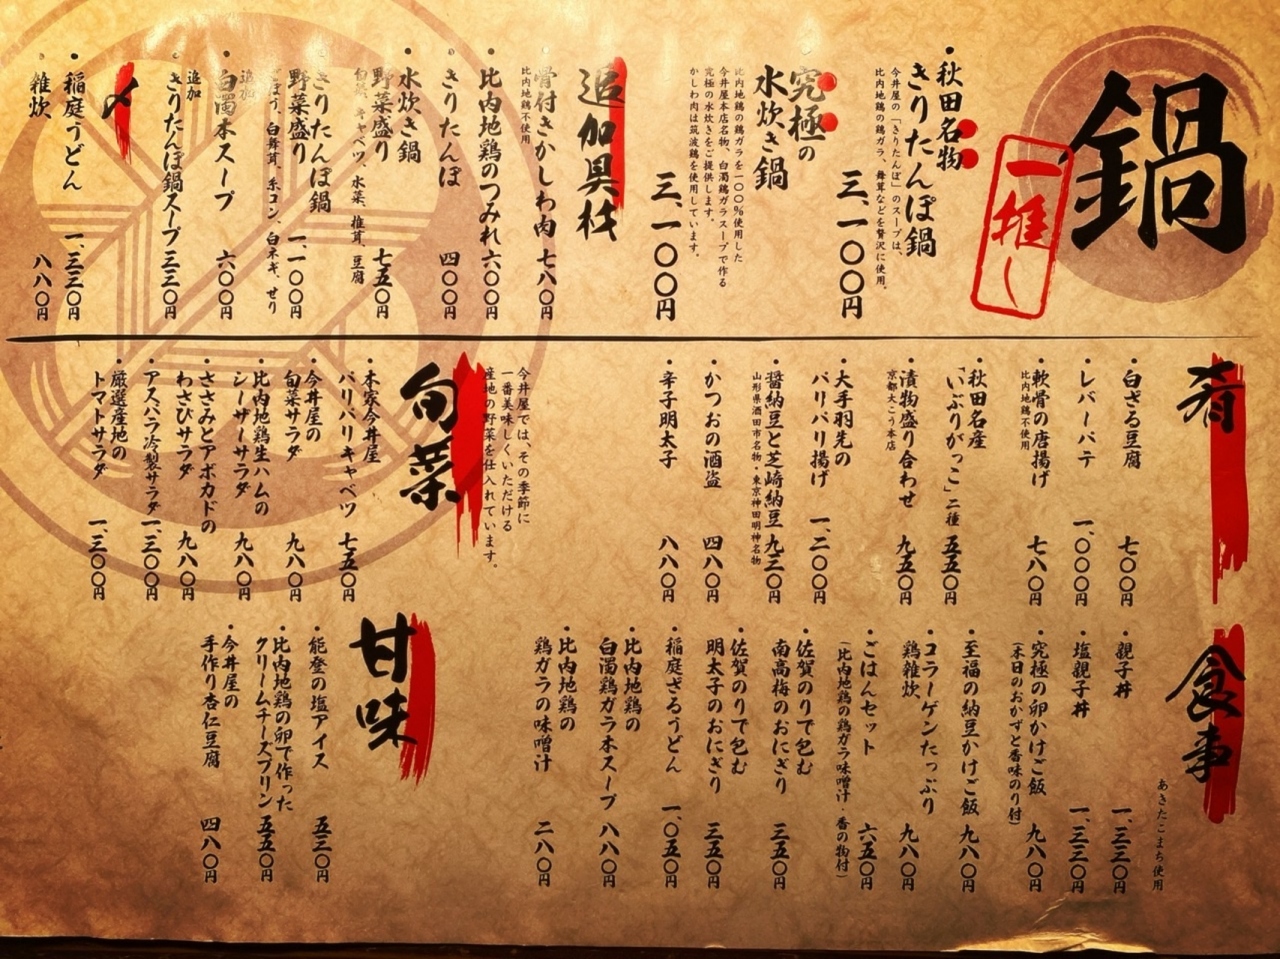 鍋
一推し
・秋田名物
きりたんぽ鍋
三、一〇〇円
今井屋の「きりたんぽ」のスープは、
比内地鶏の鶏ガラ、舞茸などを贅沢に使用。
究極の
水炊き鍋
三、一〇〇円
比内地鶏の鶏ガラを一〇〇%使用した
今井屋本店名物、白濁鶏ガラスープで作る
究極の水炊きをご提供します。
かしわ肉は筑波鶏を使用しています。
追加具材
骨付きかしわ肉 七八〇円
比内地鶏不使用
・比内地鶏のつみれ 六〇〇円
・きりたんぽ 四〇〇円
・水炊き鍋
野菜盛り 七五〇円
白菜、キャベツ、水菜、椎茸、豆腐
・きりたんぽ鍋
野菜盛り 一、一〇〇円
ごぼう、白舞茸、糸コン、白ネギ、せり
追加
・白濁本スープ 六〇〇円
追加
・きりたんぽ鍋スープ 三三〇円
〆
・稲庭うどん 一、三三〇円
・雑炊 八八〇円
肴
・白ざる豆腐 七〇〇円
・レバーパテ 一、〇〇〇円
・軟骨の唐揚げ 七八〇円
比内地鶏不使用
・秋田名産
「いぶりがっこ」二種 五五〇円
・漬物盛り合わせ 九五〇円
京都大こう本店
・大手羽先の
パリパリ揚げ 一、二〇〇円
・醤納豆と芝崎納豆 九三〇円
山形県酒田市名物・東京神田明神名物
・かつおの酒盗 四八〇円
・辛子明太子 八八〇円
旬菜
今井屋では、その季節に
一番美味しくいただける
産地の野菜を仕入れています。
・本家今井屋
パリパリキャベツ 七五〇円
・今井屋の
旬菜サラダ 九八〇円
・比内地鶏生ハムの
シーザーサラダ 九八〇円
・ささみとアボカドの
わさびサラダ 九八〇円
・アスパラ冷製サラダ 一、三〇〇円
・厳選産地の
トマトサラダ 一、三〇〇円
食事
あきたこまち使用
・親子丼 一、三三〇円
・塩親子丼 一、三三〇円
・究極の卵かけご飯 九八〇円
(本日のおかずと香味のり付)
・至福の納豆かけご飯 九八〇円
・コラーゲンたっぷり
鶏雑炊 九八〇円
・ごはんセット 六五〇円
(比内地鶏の鶏ガラ味噌汁・香の物付)
・佐賀のりで包む
南高梅のおにぎり 三五〇円
・佐賀のりで包む
明太子のおにぎり 三五〇円
・稲庭ざるうどん 一、〇五〇円
・比内地鶏の
白濁鶏ガラ本スープ 八八〇円
・比内地鶏の
鶏ガラの味噌汁 二八〇円
甘味
・能登の塩アイス 五三〇円
・比内地鶏の卵で作った
クリームチーズプリン 五五〇円
・今井屋の
手作り杏仁豆腐 四八〇円